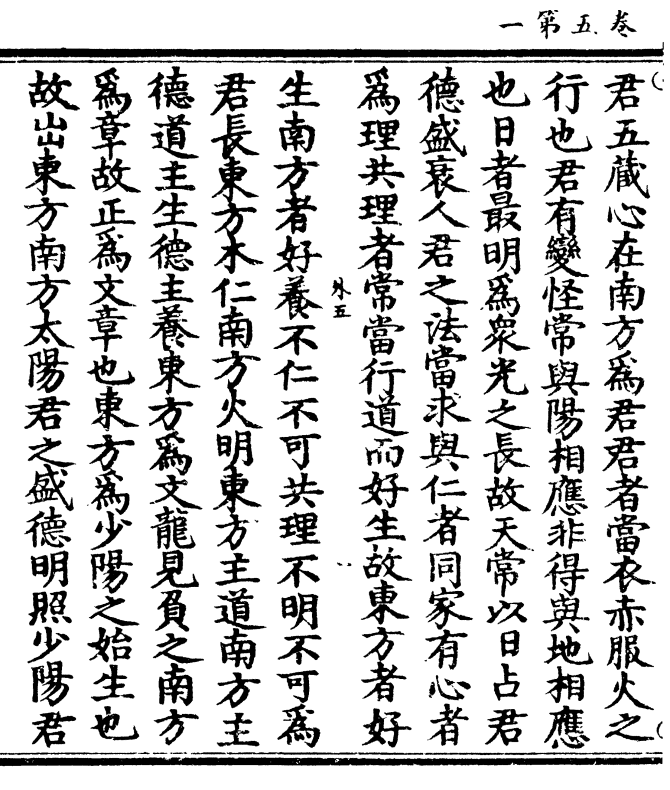 卷五第一
君五藏心在南方爲君君者當衣赤服火之
行也君有變怪常與陽相應非得與地相應
也日者最明爲衆光之長故天常以日占君
德盛衰人君之法當求與仁者同家有心者
爲理共理者常當行道而好生故東方者好
外五
生南方者好養不仁不可共理不明不可爲
君長東方木仁南方火明東方主道南方主
德道主生德主養東方爲文龍見負之南方
爲章故正爲文章也東方爲少陽之始生也
故出東方南方太陽君之盛德明照少陽君